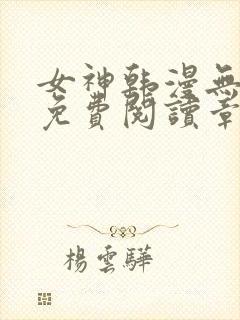 女神韩漫無
免費閱讀章
楊雲驊